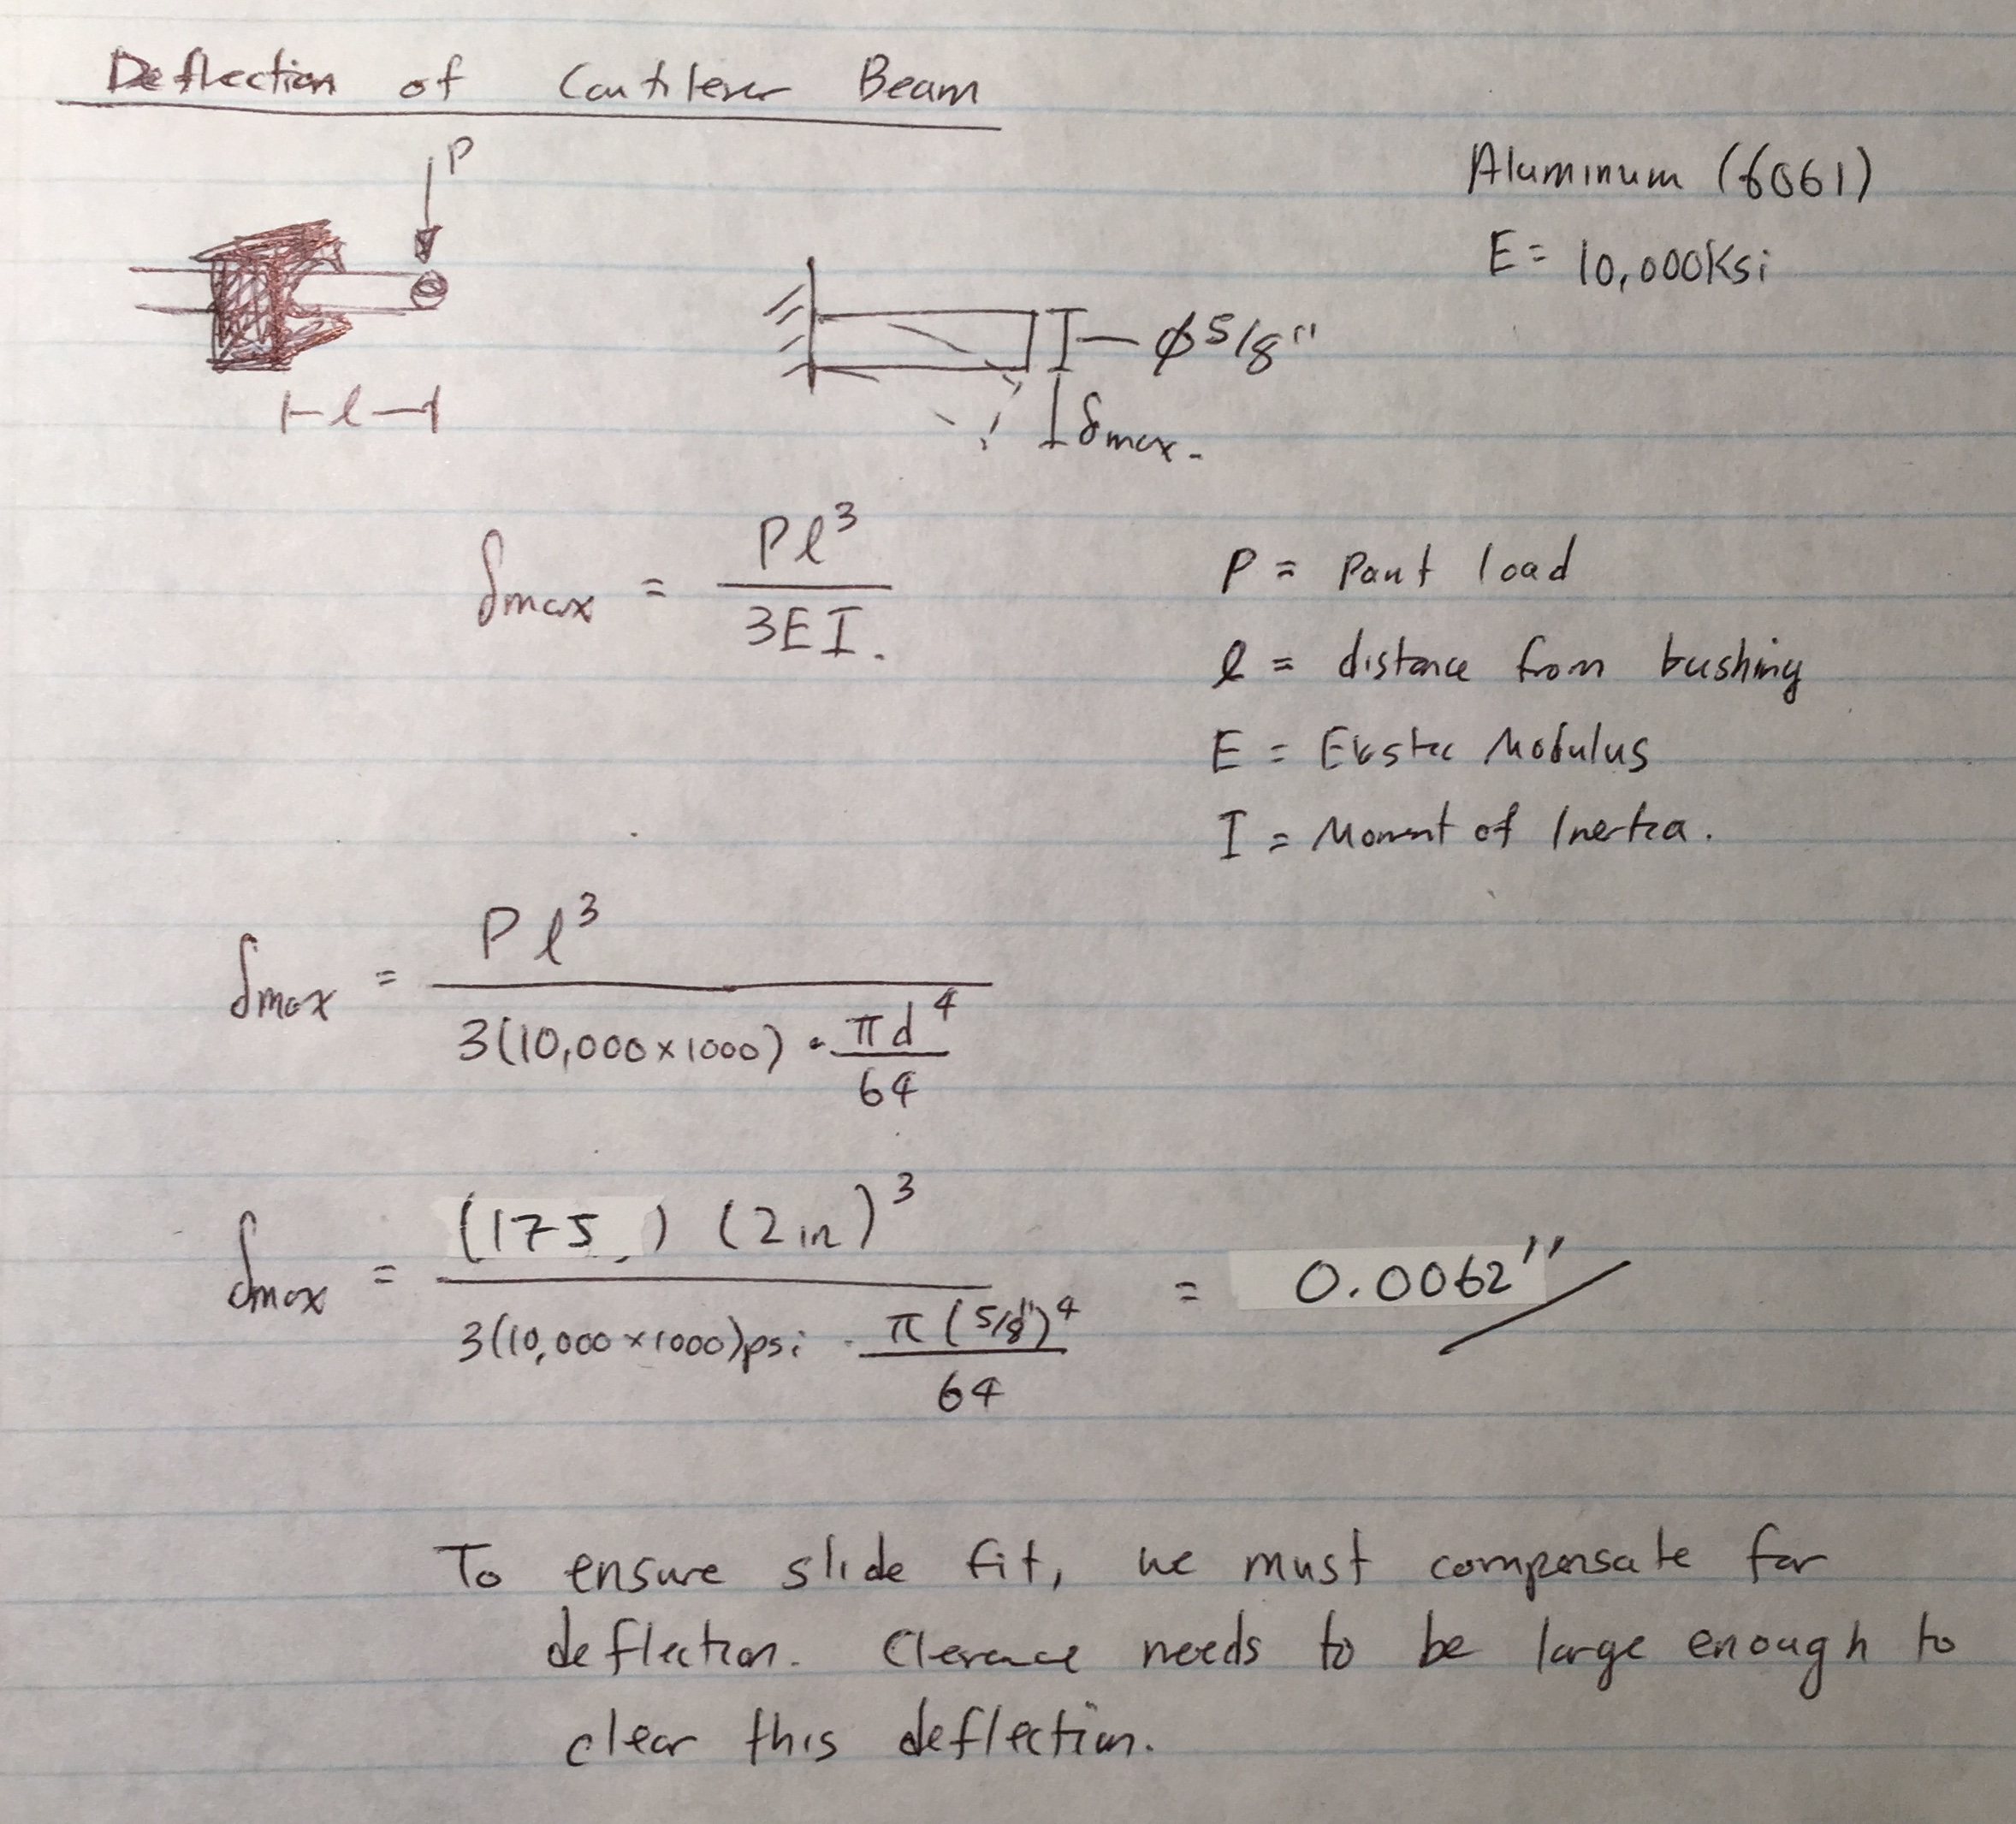 Deflection of Cantilever Beam
P
Aluminum (6061)
E = 10,000Ksi
l
ϕ 5/8"
δmax.
δmax = Pl³ / 3EI.
P = Point load
l = distance from bushing
E = Elastic Modulus
I = Moment of Inertia.
δmax = Pl³ / 3(10,000×1000) · πd⁴/64
δmax = (175 ) (2in)³ / 3(10,000×1000)psi · π(5/8")⁴/64 = 0.0062"
To ensure slide fit, we must compensate for
deflection. Clerance needs to be large enough to
clear this deflection.